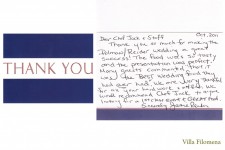 THANK YOU
Dear Chef Jack & Staff Oct. 2011
Thank you so much for making the
Delmour/Reider wedding a great
success! The food was so tasty
and the presentation was perfect!
Many guests commented that it
was the Best wedding food they
had ever had. We are very thankful
for all your hard work & effort. We
would recommend Chef Jack to anyone
looking for a
Sincerely,
Villa Filomena